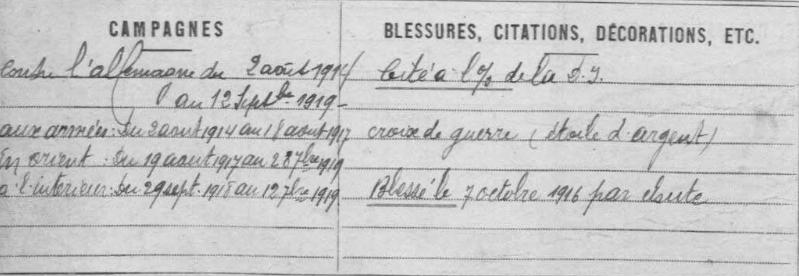 CAMPAGNES
contre l'allemagne du 2 août 1914
au 12 Septbre 1919-
aux armées: Du 2 aout 1914 au 18 aout 1917
En orient: Du 19 aout 1917 au 28 7bre 1919
a l'interieur: Du 29 sept. 1918 au 12 7bre 1919
BLESSURES, CITATIONS, DÉCORATIONS, ETC.
Cité a l'% de la D.I.
croix de guerre (étoile d'argent)
Blessé le 7 octobre 1916 par chute